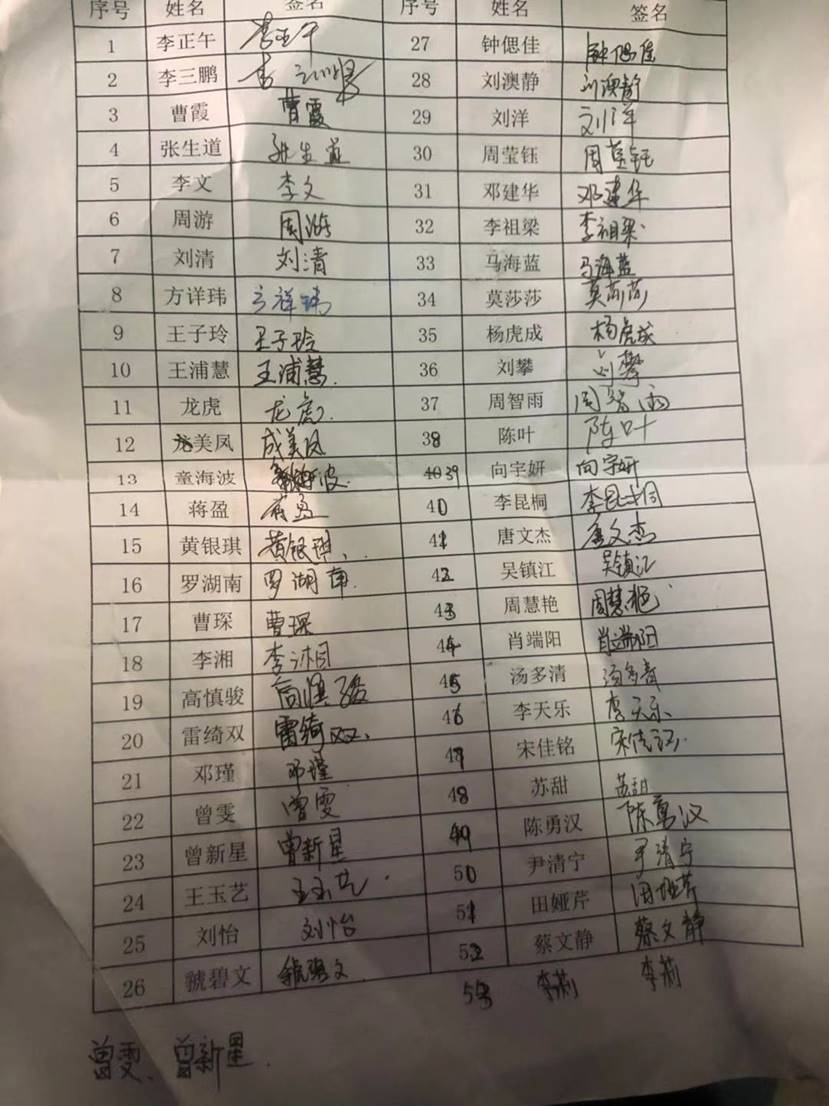 序号 姓名 签名 序号 姓名 签名
1 李正午 李正午 27 钟偲佳 钟偲佳
2 李三鹏 李三鹏 28 刘澳静 刘澳静
3 曹霞 曹霞 29 刘洋 刘洋
4 张生道 张生道 30 周莹钰 周莹钰
5 李文 李文 31 邓建华 邓建华
6 周游 周游 32 李祖梁 李祖梁
7 刘清 刘清 33 马海蓝 马海蓝
8 方详玮 方祥玮 34 莫莎莎 莫莎莎
9 王子玲 王子玲 35 杨虎成 杨虎成
10 王浦慧 王浦慧. 36 刘攀 刘攀
11 龙虎 龙虎. 37 周智雨 周智雨
12 成美凤 成美凤 38 陈叶 陈叶
13 童海波 童海波. 39 向宇妍 向宇妍
14 蒋盈 蒋盈 40 李昆桐 李昆桐
15 黄银琪 黄银琪、 41 唐文杰 唐文杰
16 罗湖南 罗湖南. 42 吴镇江 吴镇江
17 曹琛 曹琛 43 周慧艳 周慧艳.
18 李湘 李湘 44 肖端阳 肖端阳
19 高慎骏 高慎骏 45 汤多清 汤多清
20 雷绮双 雷绮双、 46 李天乐 李天乐
21 邓瑾 邓瑾 47 宋佳铭 宋佳铭.
22 曾雯 曾雯 48 苏甜 苏甜
23 曾新星 曾新星 49 陈勇汉 陈勇汉
24 王玉艺 王玉艺. 50 尹清宁 尹清宁
25 刘怡 刘怡 51 田娅芹 田娅芹
26 虢碧文 虢碧文. 52 蔡文静 蔡文静
53 李莉 李莉
曾雯、曾新星.